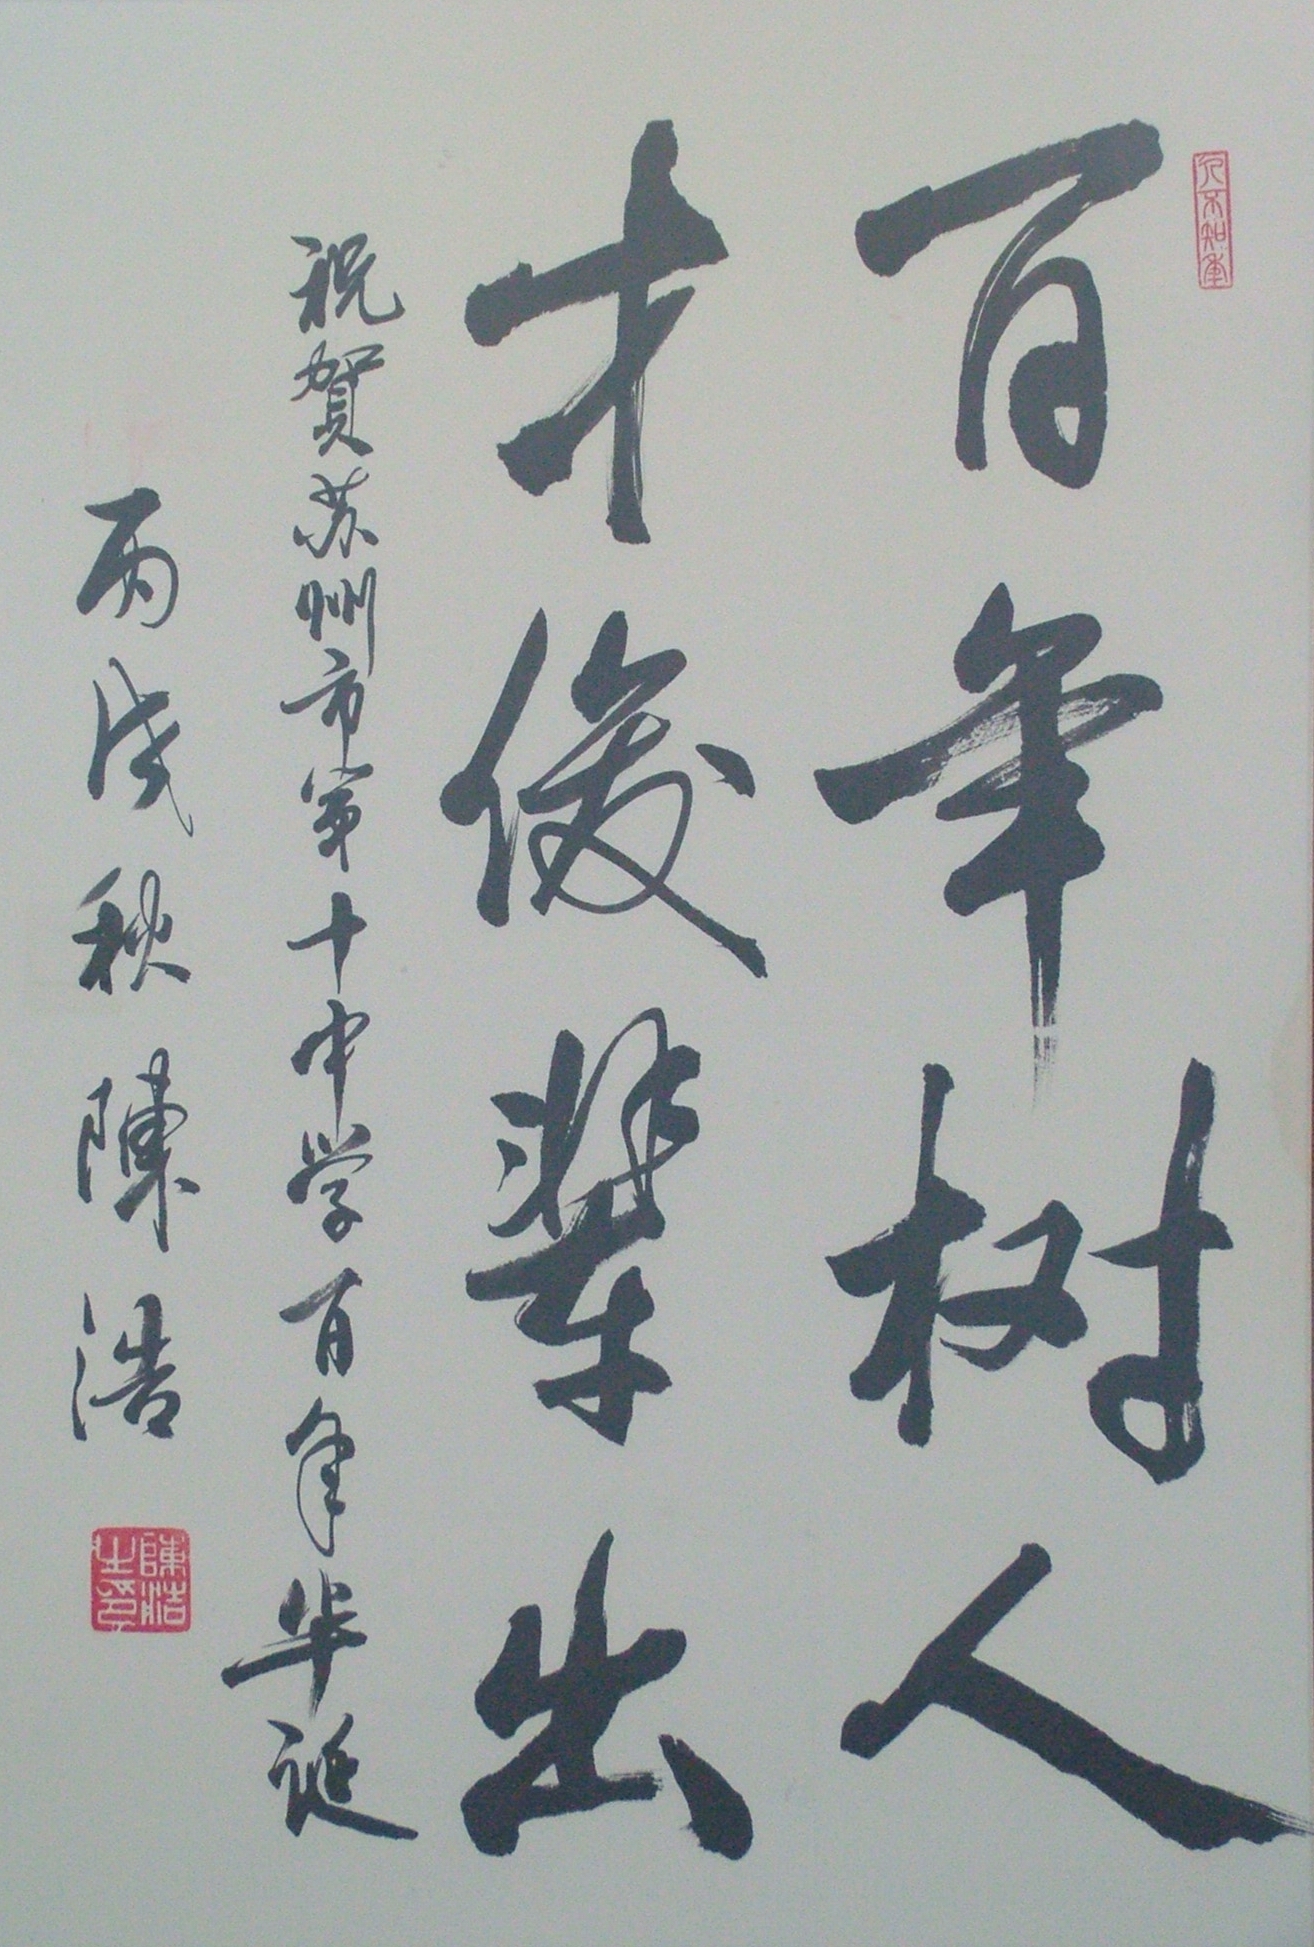 人不知年
百年树人
才俊辈出
祝賀苏州市第十中学百年华诞
丙戌秋陳浩
陳浩之印